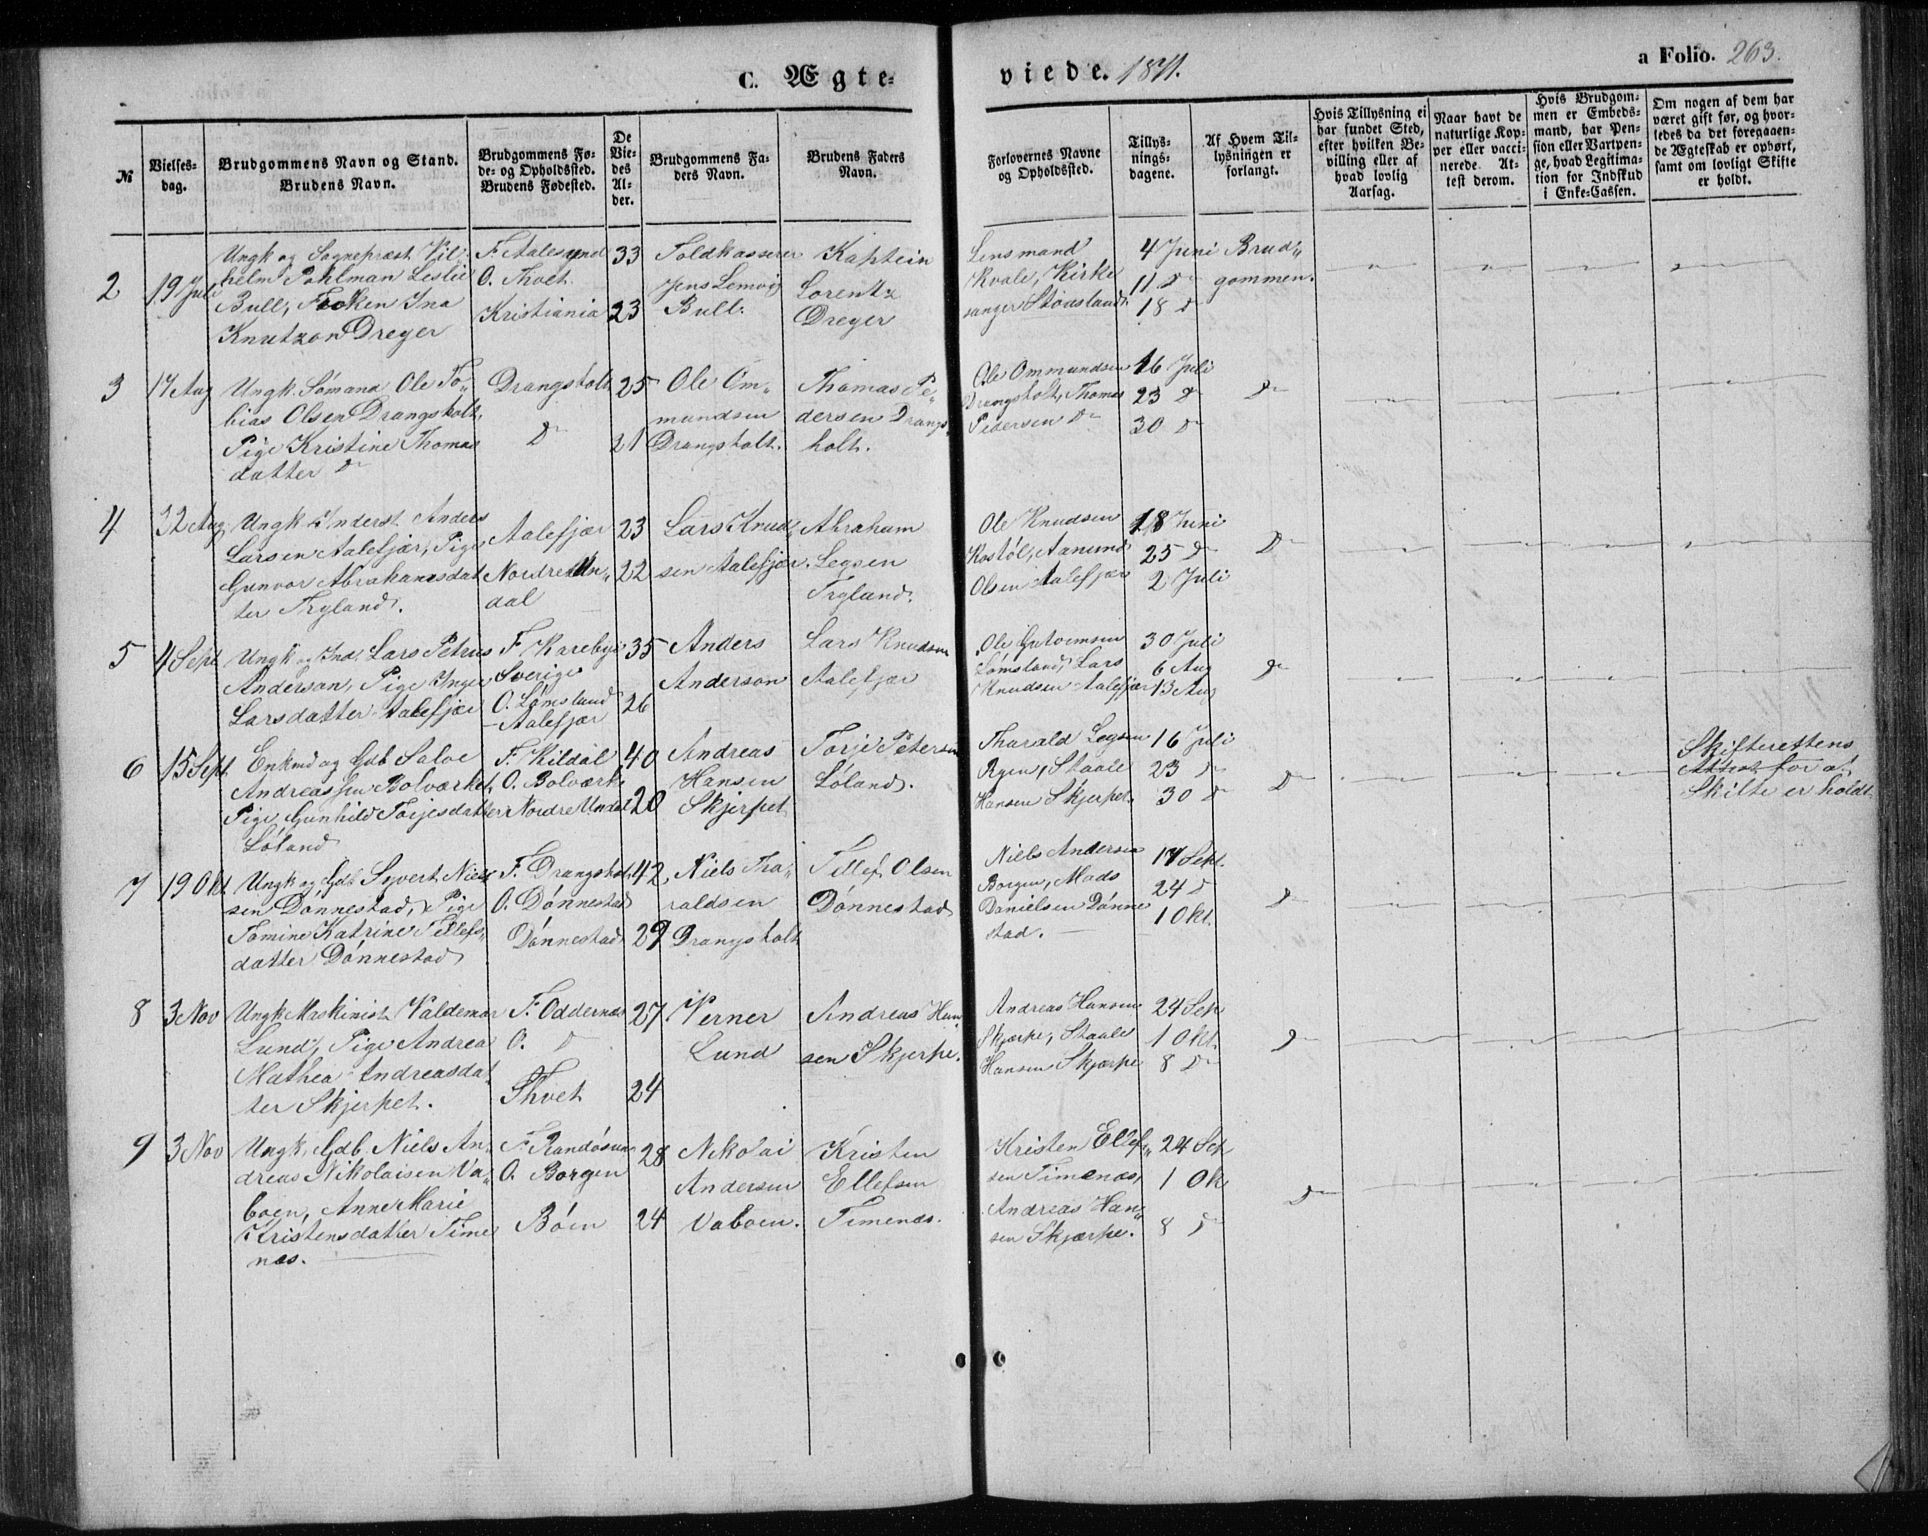 C. Ægte-
viede. 1871.
a Folio. 263.
№
Vielses-
dag.
Brudgommens Navn og Stand.
Brudens Navn.
Brudgommens Fø-
de- og Opholdssted.
Brudens Fødested.
De
Vie-
des
Al-
der.
Brudgommens Fa-
ders Navn.
Brudens Faders
Navn.
Forlovernes Navne
og Opholdssted.
Tillys-
nings-
dagene.
Af Hvem Til-
lysningen er
forlangt.
Hvis Tillysning ei
har fundet Sted,
efter hvilken Be-
villing eller af
hvad lovlig
Aarsag.
Naar havt de
naturlige Kop-
per eller vacci-
nerede. At-
test derom.
Hvis Brudgom-
men er Embeds-
mand, har Pen-
sion eller Vartpen-
ge, hvad Legitima-
tion for Indskud
i Enke-Cassen.
Om nogen af dem har
været gift før, og hvor-
ledes da det foregaaen-
de Ægteskab er ophørt,
samt om lovligt Skifte
er holdt.
2
19 Juli
Ungk og Sognepræst Vil-
helm Pohlman Leslie
Bull, Frøken Ina
Knutzon Dreyer
F. Aalesund
O. Thvet
Kristiania
33
23
Toldkasserer
Jens Lemvig
Bull.
Kaptein
Lorentz
Dreyer
Lensmand
Kvale, Kirke
sanger Stousland.
4 Juni
11 D
18 D
Brud„
gommen.
3
17 Aug
Ungk. Sömand Ole To-
bias Olsen Drangsholt,
Pige Kristine Thomas
datter D
Drangsholt
D
25
21
Ole Om„
mundsen
Drangsholt.
Thomas Pe„
dersen Drangs
holt.
Ole Ommundsen
Drangsholt, Thomas
Pedersen D
16 Juli
23 D
30 D
D
4
32 Aug.
Ungk Inderst Anders
Larsen Aalefjær, Pige
Gunvor Abrahamsdat
ter Tryland.
Aalefjær
Nordre Un„
dal
23
22
Lars Knud„
sen Aalefjær.
Abraham
Legsen
Tryland.
Ole Knudsen
Kostöl, Aanund
Olsen Aalefjær
18 Juni
25 D
2 Juli
D
5
4 Sept
Ungk og Ind. Lars Petrus
Anderson, Pige Inger
Larsdatter Aalefjær
F. Kareby
Sverige
O. Lömsland
Aalefjær
35
26
Anders
Anderson
Lars Knudsen
Aalefjær
Ole Gutormsen
Lömsland, Lars
Knudsen Aalefjær
30 Juli
6 Aug
13 Aug
D
6
15 Sept
Enkmd og Gdb Salve
Andreassen Bolværket,
Pige Gunhild Torjesdatter
Löland
F. Kildal
O. Bolværk
Nordre Undal
40
20
Andreas
Hansen
Skjerpet
Torje Petersen
Löland.
Tharald Legsen
Rgen, Staale
Hansen Skjerpet.
16 Juli
23 D
30 D
D
Skifterettens
Attest for at
Skifte er holdt.
7
19 Okt
Ungk og Gdb Syvert Niel
sen Dönnestad, Pige
Tomine Katrine Tellefs„
datter Dönnestad
F. Drangsholt
O. Dönnestad
Dönnestad
42
29
Niels Tha„
raldsen
Drangsholt
Tellef Olsen
Dönnestad
Niels Andersen
Borgen, Mads
Danielsen Dönne
stad.
17 Sept.
24 D
1 Okt.
D
8
3 Nov
Ungk Maskinist Valdemar
Lund, Pige Andrea
Mathea Andreasdat
ter Skjerpet.
F. Oddernæs
O. D
Thvet
27
24
Verner
Lund
Andreas Han„
sen Skjerpe.
Andreas Hansen
Skjærpe, Staale
Hansen Skjærpe
24 Sep
1 Okt.
8 D
D
9
3 Nov
Ungk, Gdb. Niels An„
dreas Nikolaisen Va„
boen, Anne Marie
Kristensdatter Time
næs.
F. Randösun
O. Borgen
Böen
28
24
Nikolai
Andersen
Vaboen.
Kristen
Ellefsen
Timenæs.
Kristen Ellef„
sen Timenæs,
Andreas Han„
sen Skjærpe.
24 Sep
1 Ok
8 D
D